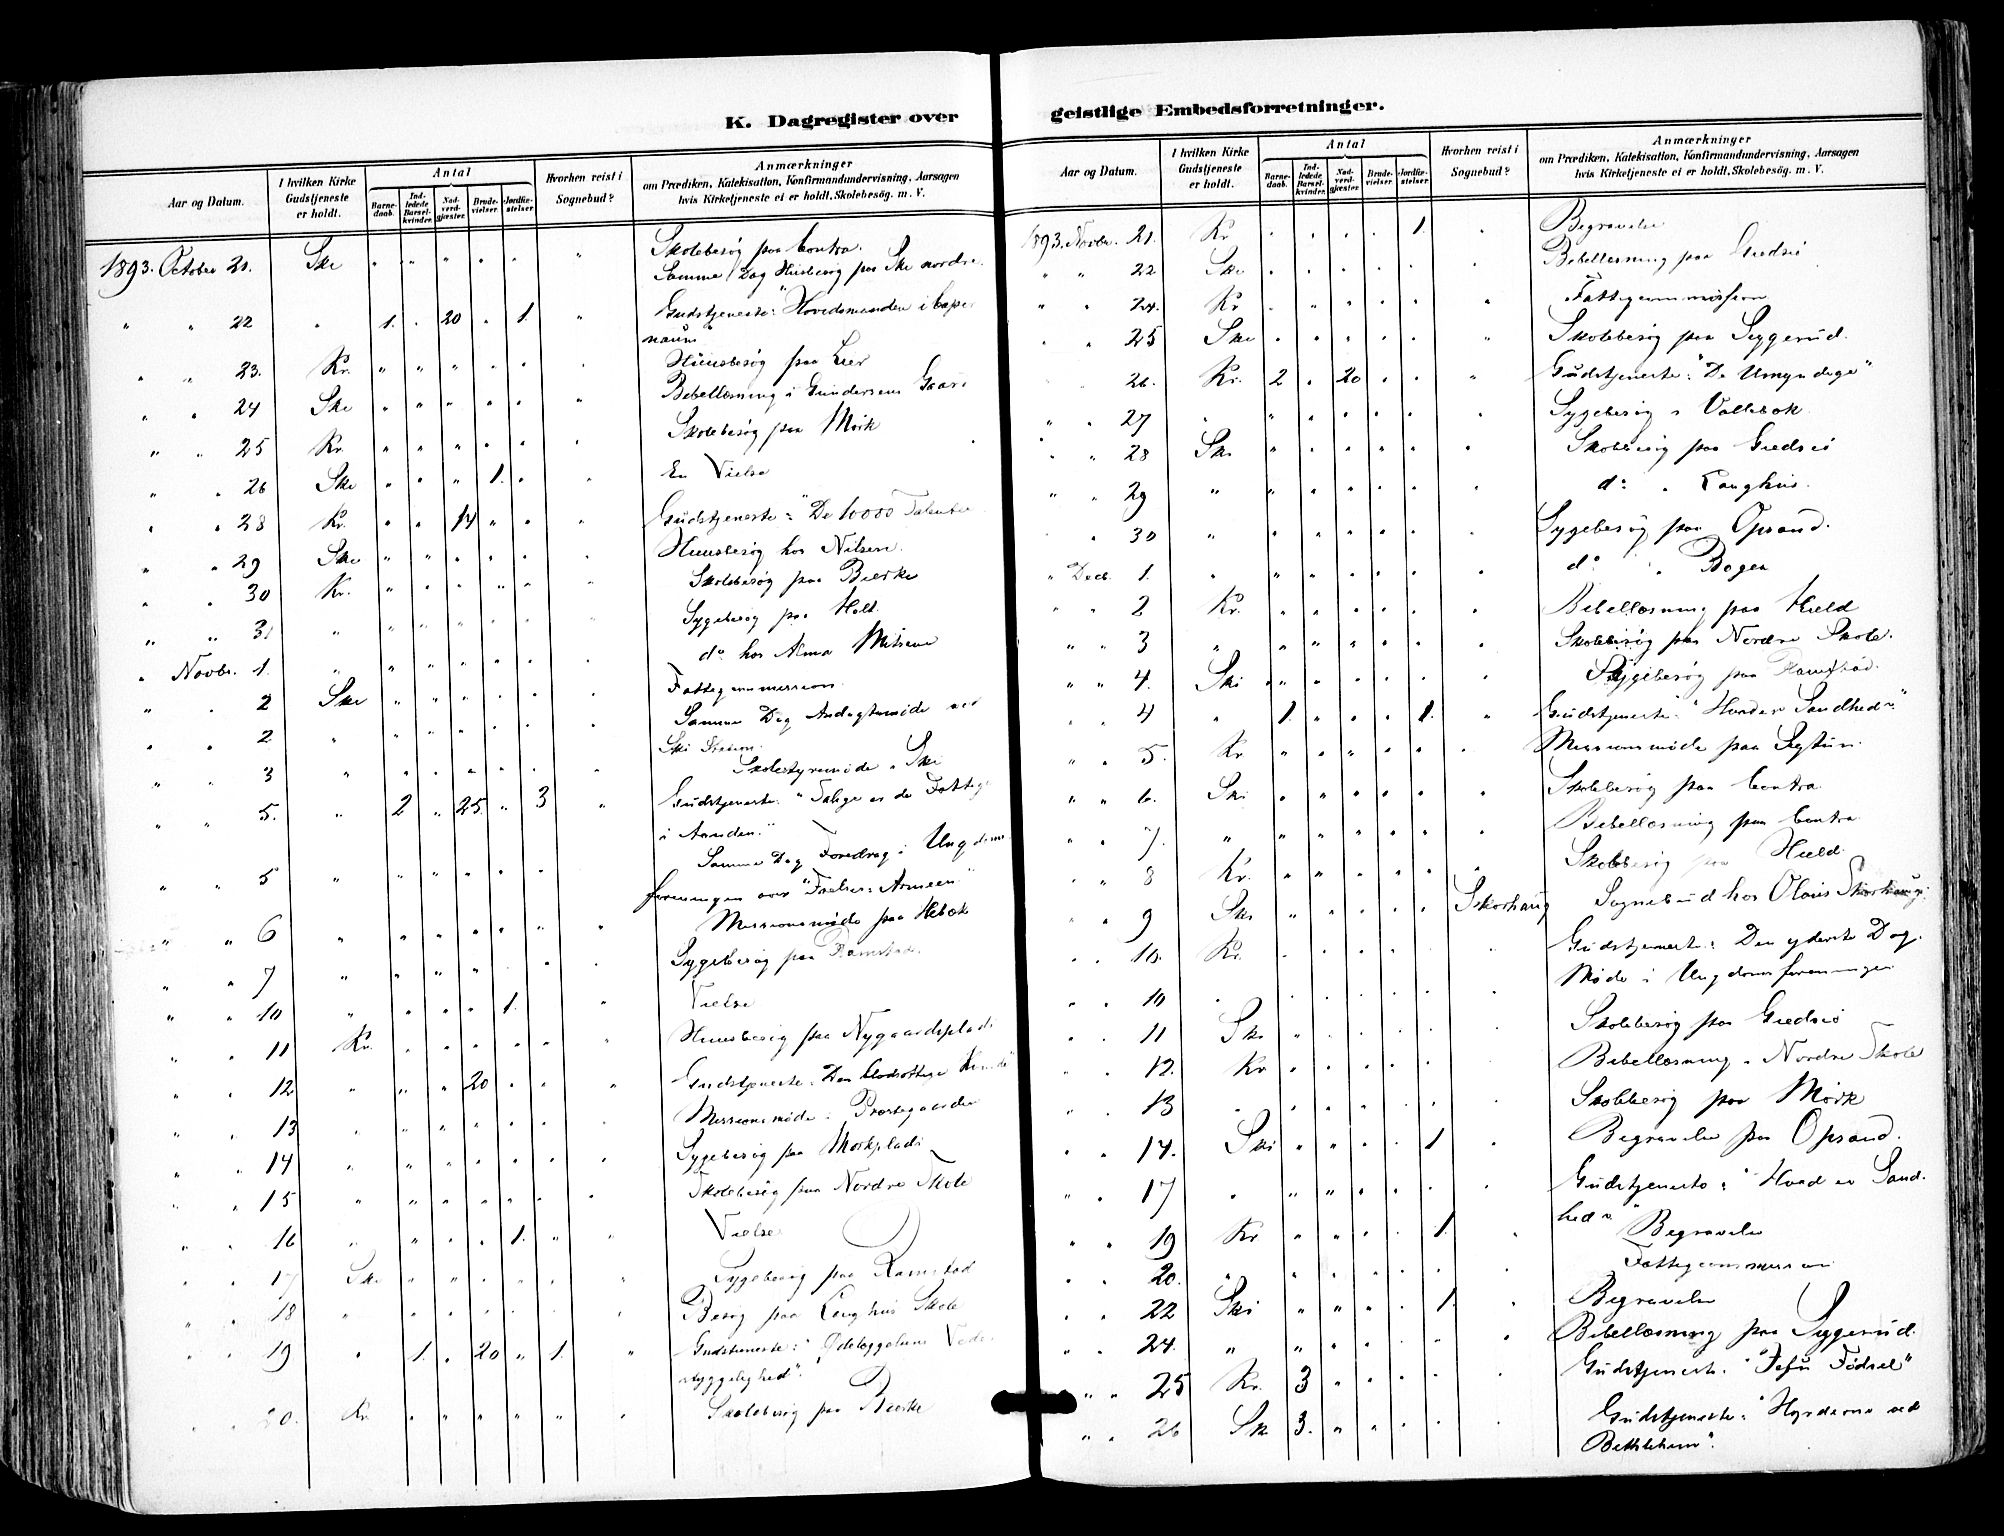 K. Dagregister over
Aar og Datum.
I hvilken Kirke Gudstjeneste er holdt.
Antal
Barne-daab.
Ind-ledede Barsel-kvinder.
Nad-verd-gjæster.
Brude-vielser.
Jordfæ-stelser.
Hvorhen reist i Sognebud?
Anmærkninger
om Prædiken, Katekisation, Konfirmandundervisning, Aarsagen
hvis Kirketjeneste ei er holdt, Skolebesøg. m. V.
1893. October 21. Ske " " " " " " Skolebesøg paa Contra.
Samme Dag Husbesøg paa Ske nordre.
" " 22 " 1. " 20 " 1. " Gudstjeneste: "Hovedsmanden i Caper
naum"
" " 23. Kr. " " " " " " Huusbesøg paa Lier
" " 24 Ske " " " " " " Bibellæsning i Gundersens Gaard
" " 25 Kr. " " " " " " Skolebesøg paa Mørk
" " 26 Ske " " " 1. " " En Vielse
" " 28 Kr. " " 14 " " " Gudstjeneste: "De 10000 Talenter
" " 29 Ske " " " " " " Huusbesøg hos Nilsen.
" " 30 Kr. " " " " " " Skolebesøg paa Bierke
" " 31 " " " " " " " Sygebesøg paa Holt.
" Novbr. 1. " " " " " " " do hos Alma
" " 2 Ske " " " " " " Fattigcommission.
" " 2 " " " " " " " Samme Dag Andagtsmøde ved
Ski Station.
" " 3 " " " " " " " Skolestyremøde " Ski
" " 5. " 2 " 25. " 3 " Gudstjeneste: "Salige er de Fattige
i Aanden."
" " 5 " " " " " " " Samme Dag Foredrag i Ungdoms
foreningen over "Frelses Armeen"
" " 6 " " " " " " " Missionsmøde paa Hebæk
" " 7 " " " " " " " Sygebesøg paa Ramstad.
" " 10 " " " " 1. " " Vielse
" " 11 Kr. " " " " " " Huusbesøg paa Nygaardsplads
" " 12 " " " 20 " " " Gudstjeneste: Den blodsottige Kvinde"
" " 13 " " " " " " " Missionsmøde i Præstegaarden
" " 14 " " " " " " " Sygebesøg paa Mørkplads
" " 15 " " " " " " " Skolebesøg paa Nordre Skole
" " 16 " " " " 1. " " Vielse
" " 17 Ske " " " " " " Sygebesøg paa Ramstad
" " 18 " " " " " " " Besøg paa Langhus Skole
" " 19 " 1. " 20 " 1. " Gudstjeneste: "Ødelæggelsens Veder
styggelighed".
" " 20. Kr. " " " " " " Skolebesøg paa Bierke
geistlige Embedsforretninger.
Aar og Datum.
I hvilken Kirke Gudstjeneste er holdt.
Antal
Barne-daab.
Ind-ledede Barsel-kvinder.
Nad-verd-gjæster.
Brude-vielser.
Jordfæ-stelser.
Hvorhen reist i Sognebud?
Anmærkninger
om Prædiken, Katekisation, Konfirmandundervisning, Aarsagen
hvis Kirketjeneste ei er holdt, Skolebesøg. m. V.
1893. Novbr. 21. Kr " " " " 1. " Begravelse
" " 22 Ske " " " " " " Bibellæsning paa Gredsiø
" " 24. Kr. " " " " " " Fattigcommission
" " 25 Ske " " " " " " Skolebesøg paa Syggerud.
" " 26. Kr. 2 " 20 " " " Gudstjeneste: "De Umyndige"
" " 27 " " " " " " " Sygebesøg i Vallebæk.
" " 28 Ski " " " " " " Skolebesøg paa Gredsiø
" " 29 " " " " " " " do " Langhus.
" " 30 " " " " " " " Sygebesøg paa Opsand.
" Decb. 1. " " " " " " " do " Bøgen
" " 2 Kr. " " " " " " Bibellæsning paa Hield
" " 3 " " " " " " " Skolebesøg paa Nordre Skole.
" " 4. Ski " " " " " " Sygebesøg paa Ramstad.
" " 4 " 1. " " " 1. " Gudstjeneste: "Hvad er Sandhed".
" " 5. Kr " " " " " " Missionsmøde paa Sigtun.
" " 6. Ski " " " " " " Skolebesøg paa Contra.
" " 7. " " " " " " " Bibellæsning paa Contra
" " 8 Kr. " " " " " " Skolebesøg paa Hield.
" " 9 Ski " " " " " Skorhaug Sognebud hos Olaus Skorhaug.
" " 10. Kr. " " " " " " Gudstjeneste: Den yderste Dag.
" " 10 " " " " " " " Møde i Ungdomsforeningen
" " 11 Ski " " " " " " Skolebesøg paa Gredsiø
" " 12. Kr " " " " " " Bibellæsning " Nordre Skole
" " 13 " " " " " " " Skolebesøg paa Mørk
" " 14. Ski " " " " 1 " Begravelse paa Opsand.
" " 17 " " " " " " " Gudstjeneste: "Hvad er Sand
hed"
" " 19 Kr. " " " " 1. " Begravelse
" " 20. " " " " " " " Fattigcommission
" " 22 Ski " " " " 1. " Begravelse
" " 24. " " " " " " " Bibellæsning paa Syggerud.
" " 25 Kr. 3 " " " " " Gudstjeneste: "Jesu Fødsel"
" " 26 Sk 3. " " " " " Gudstjeneste: "Hyrderne ved
Bethlehem".